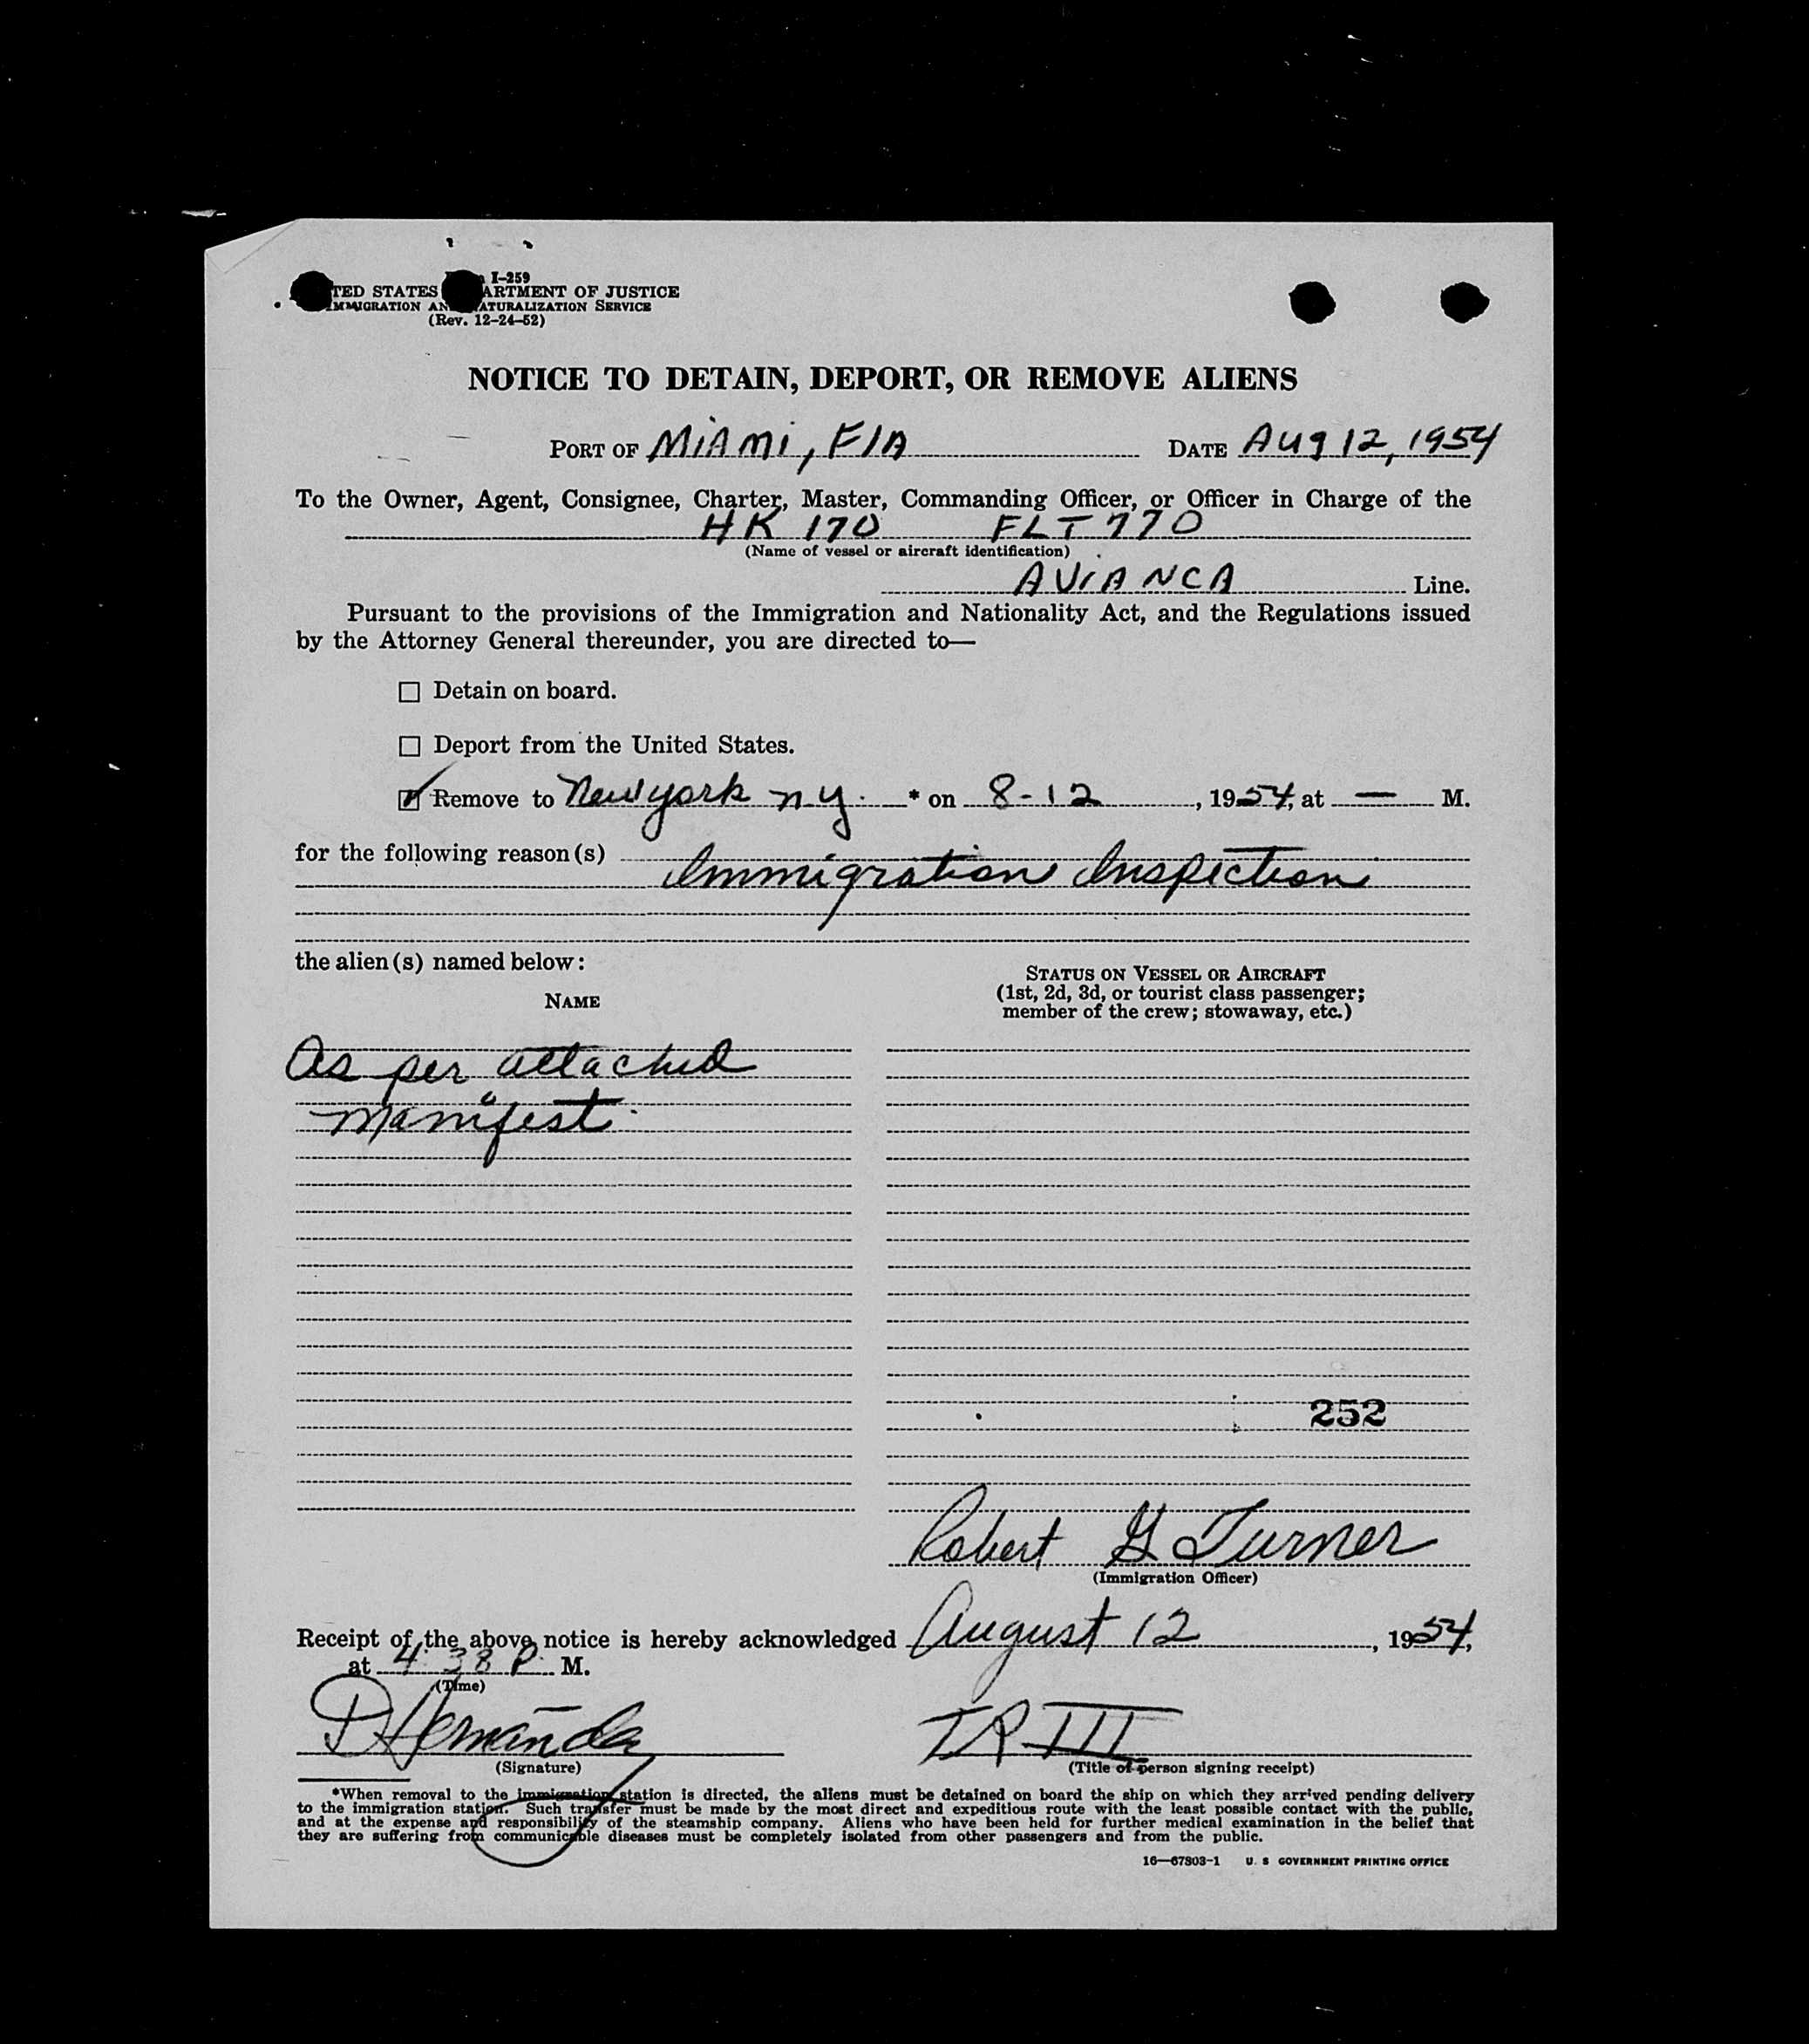 I-259
TED STATES ARTMENT OF JUSTICE
IMMIGRATION AN ATURALIZATION SERVICE
(Rev. 12-24-52)
NOTICE TO DETAIN, DEPORT, OR REMOVE ALIENS
PORT OF MiAmi, FlA DATE Aug 12, 1954
To the Owner, Agent, Consignee, Charter, Master, Commanding Officer, or Officer in Charge of the
HK 170 FLT 770
(Name of vessel or aircraft identification)
AViANCA Line.
Pursuant to the provisions of the Immigration and Nationality Act, and the Regulations issued
by the Attorney General thereunder, you are directed to—
☐ Detain on board.
☐ Deport from the United States.
☑ Remove to New york n.y. * on 8-12, 1954, at — M.
for the following reason(s)
Immigration Inspection
the alien(s) named below:
NAME
STATUS ON VESSEL OR AIRCRAFT
(1st, 2d, 3d, or tourist class passenger;
member of the crew; stowaway, etc.)
As per attached
manifest.
252
Robert G Turner
(Immigration Officer)
Receipt of the above notice is hereby acknowledged August 12, 1954,
at 4:38 P. M.
(Time)
TR III
(Signature) (Title of person signing receipt)
*When removal to the immigration station is directed, the aliens must be detained on board the ship on which they arrived pending delivery
to the immigration station. Such transfer must be made by the most direct and expeditious route with the least possible contact with the public,
and at the expense and responsibility of the steamship company. Aliens who have been held for further medical examination in the belief that
they are suffering from communicable diseases must be completely isolated from other passengers and from the public.
16—67803-1 U. S GOVERNMENT PRINTING OFFICE